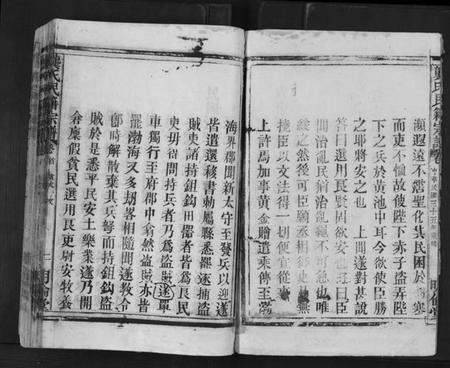 瀕遐遠不霑聖化其民困於飢寒
而吏不恤故使陛下赤子盜弄陛
下之兵於黃池中耳今欲使臣勝
之耶將安之也上聞遂對甚說
答曰選用良賢固欲安也遂曰臣
聞治亂民猶治亂繩不可急也唯
緩之然後可臣願丞相御史且無
拘臣以文法得一切便宜從事
上許焉加事黃金贈遣乘傳至渤
海界郡聞新太守至發兵以迎遂
皆遣還移書勅屬縣悉罷逐捕盜
賊吏諸持鉏鈎田器者皆為良民
吏毋得問持兵者乃為盜賊遂單
車獨行至府郡中翕然盜賊亦皆
罷渤海又多劫畧相隨聞遂教令
即時解散棄其兵弩而持鉏鈎盜
賊於是悉平民安土樂業遂乃開
倉廩假貧民選用良吏尉安牧養